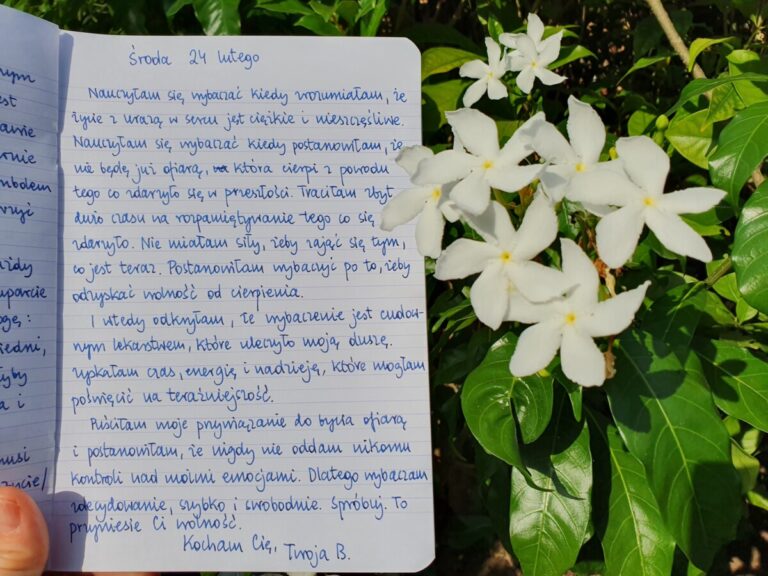 nym
est
awie
ernie
mbolem
rzyć
ażdy
uparcie
ogę:
iedni,
zyby
a i
musi
zycie/
Środa 24 lutego
Nauczyłam się wybaczać kiedy zrozumiałam, że
życie z urazą w sercu jest ciężkie i nieszczęśliwe.
Nauczyłam się wybaczać kiedy postanowiłam, że
nie będę już ofiarą, która cierpi z powodu
tego co zdarzyło się w przeszłości. Traciłam zbyt
dużo czasu na rozpamiętywanie tego co się
zdarzyło. Nie miałam siły, żeby zająć się tym,
co jest teraz. Postanowiłam wybaczyć po to, żeby
odzyskać wolność od cierpienia.
I wtedy odkryłam, że wybaczenie jest cudow-
nym lekarstwem, które uleczyło moją duszę.
Zyskałam czas, energię i nadzieję, które mogłam
poświęcić na teraźniejszość.
Puściłam moje przywiązanie do bycia ofiarą
i postanowiłam, że nigdy nie oddam nikomu
kontroli nad moimi emocjami. Dlatego wybaczam
zdecydowanie, szybko i swobodnie. Spróbuj. To
przyniesie Ci wolność.
Kocham Cię, Twoja B.